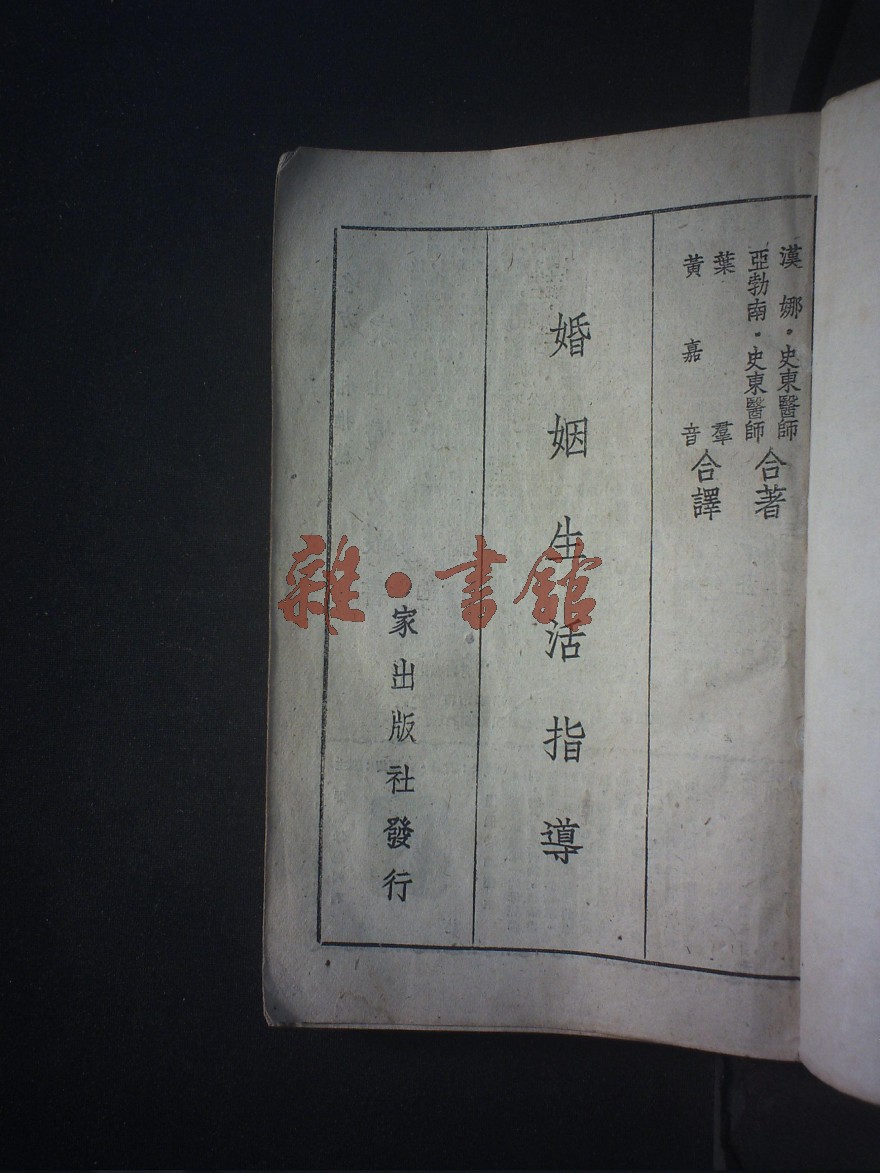 漢娜。史東醫師
亞勃南·史東醫師
合著
葉羣
黃嘉音
合譯
婚姻生活指導
家出版社發行
雜·書館